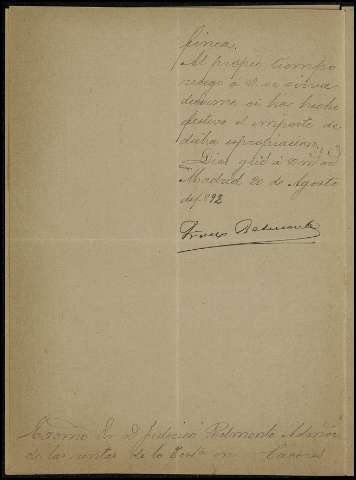 finca.
Al propio tiempo
ruego a V. se sirva
decirme si ha hecho
efectivo el importe de
dicha expropiacion.
Dios gue á V. m. as
Madrid 20 de Agosto
de 1892
Belmonte
Excmo Sr D Federico Belmonte Admor
de las rentas de la en Caceres